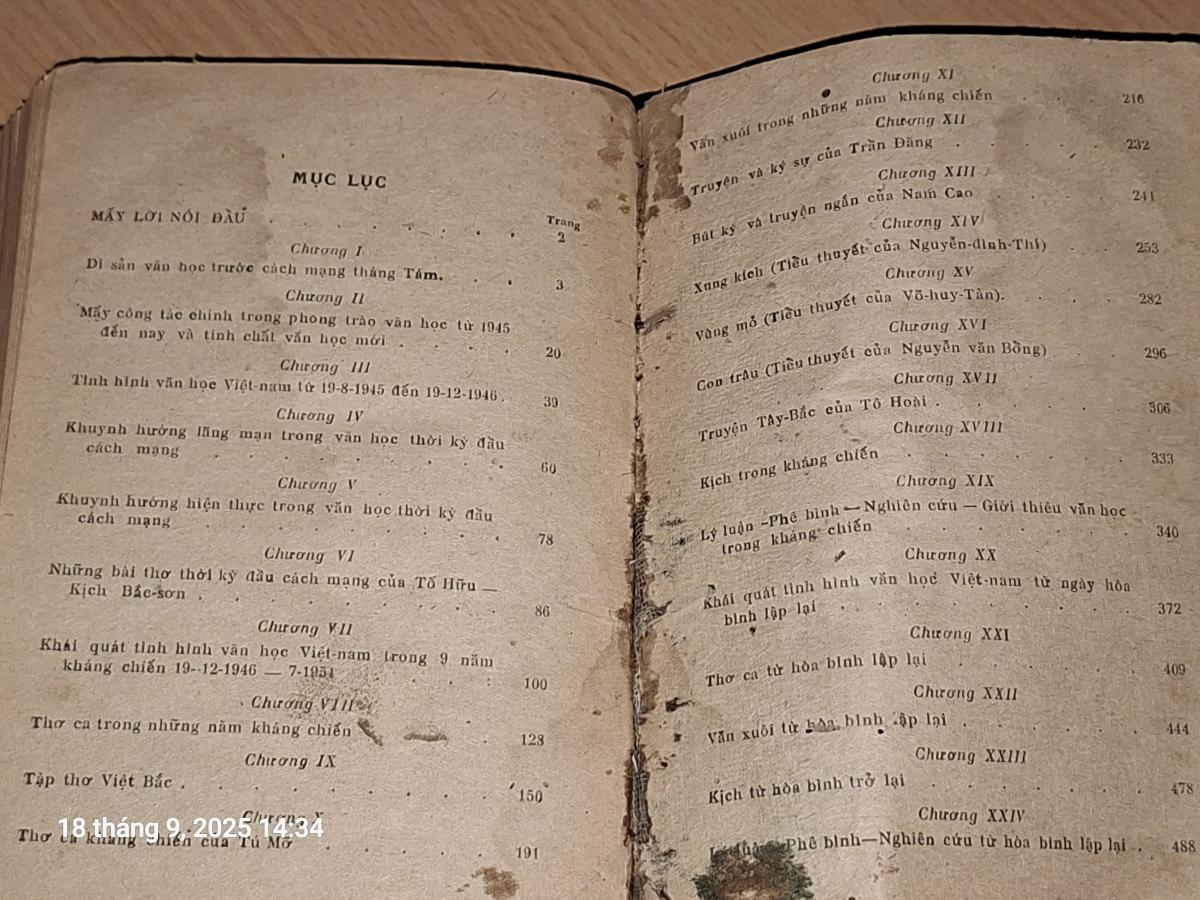 MỤC LỤC
Trang
MẤY LỜI NÓI ĐẦU . . . . . . . 2
Chương I
Di sản văn học trước cách mạng tháng Tám. . . 3
Chương II
Mấy công tác chính trong phong trào văn học từ 1945
đến nay và tính chất văn học mới . . . . 20
Chương III
Tình hình văn học Việt-nam từ 19-8-1945 đến 19-12-1946. 39
Chương IV
Khuynh hướng lãng mạn trong văn học thời kỳ đầu
cách mạng . . . . . . . 60
Chương V
Khuynh hướng hiện thực trong văn học thời kỳ đầu
cách mạng . . . . . . . 78
Chương VI
Những bài thơ thời kỳ đầu cách mạng của Tố Hữu —
Kịch Bắc-sơn . . . . . . . 86
Chương VII
Khái quát tình hình văn học Việt-nam trong 9 năm
kháng chiến 19-12-1946 — 7-1954 . . . . 100
Chương VIII
Thơ ca trong những năm kháng chiến . . . 128
Chương IX
Tập thơ Việt Bắc . . . . . . . 150
Chương X
Thơ ca kháng chiến của Tú Mỡ . . . . 191
Chương XI
Văn xuôi trong những năm kháng chiến . . . 216
Chương XII
Truyện và ký sự của Trần Đăng . . . . 232
Chương XIII
Bút ký và truyện ngắn của Nam Cao . . . 241
Chương XIV
Xung kích (Tiểu thuyết của Nguyễn-đình-Thi) . . 253
Chương XV
Vùng mỏ (Tiểu thuyết của Võ-huy-Tân). . . . 282
Chương XVI
Con trâu (Tiểu thuyết của Nguyễn văn Bồng) . . 296
Chương XVII
Truyện Tây-Bắc của Tô Hoài . . . . . 306
Chương XVIII
Kịch trong kháng chiến . . . . . . 333
Chương XIX
Lý luận -Phê bình — Nghiên cứu — Giới thiêu văn học
trong kháng chiến . . . . . . 340
Chương XX
Khái quát tình hình văn học Việt-nam từ ngày hòa
bình lập lại . . . . . . . 372
Chương XXI
Thơ ca từ hòa bình lập lại . . . . . 409
Chương XXII
Văn xuôi từ hòa bình lập lại . . . . . 444
Chương XXIII
Kịch từ hòa bình trở lại . . . . . . 478
Chương XXIV
Phê bình—Nghiên cứu từ hòa bình lập lại . 488
18 tháng 9, 2025 14:34